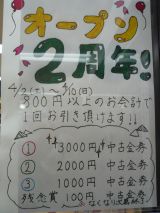 オープン
2周年!
4/2(土)~4/10(日)
800円以上のお会計で
1回お引き頂けます!!
① 3000円 中古金券
② 2000円 中古金券
③ 1000円 中古金券
残念賞 100円 中古金券
※なくなり次第終了